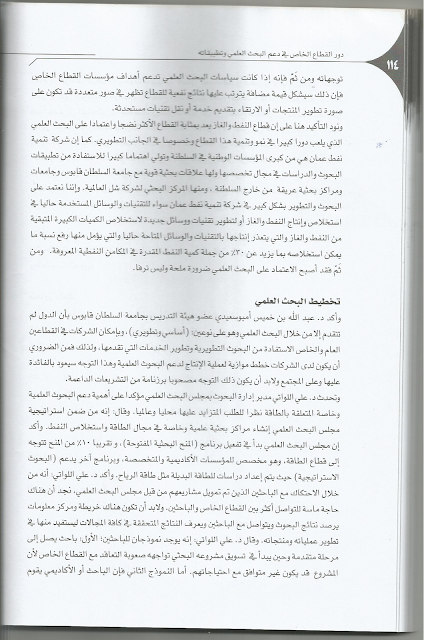 دور القطاع الخاص في دعم البحث العلمي وتطبيقاته
١١٤
توجهاته ومن ثم فإنه إذا كانت سياسات البحث العلمي تدعم أهداف مؤسسات القطاع الخاص
فإن ذلك سيشكل قيمة مضافة يترتب عليها نتائج نفعية للقطاع تظهر في صور متعددة قد تكون على
صورة تطوير المنتجات أو الارتقاء بتقديم خدمة أو نقل تقنيات مستحدثة.
ونود التأكيد هنا على إن قطاع النفط والغاز يعد بمثابة القطاع الأكثر نضجا واعتمادا على البحث العلمي
الذي يلعب دورا كبيرا في نمو وتنمية هذا القطاع وخصوصا في الجانب التطويري. كما إن شركة تنمية
نفط عمان هي من كبرى المؤسسات الوطنية في السلطنة وتولي اهتماما كبيرا للاستفادة من تطبيقات
البحوث والدراسات في مجال تخصصها ولها علاقات بحثية قوية مع جامعة السلطان قابوس وجامعات
ومراكز بحثية عريقة من خارج السلطنة ، ومنها المركز البحثي لشركة شل العالمية. وإننا نعتمد على
البحوث والتطوير بشكل كبير في شركة تنمية نفط عمان سواء للتقنيات والوسائل المستخدمة حاليا في
استخلاص وإنتاج النفط والغاز أو لتطوير تقنيات ووسائل جديدة لاستخلاص الكميات الكبيرة المتبقية
من النفط والغاز والتي يتعذر إنتاجها بالتقنيات والوسائل المتاحة حاليا والتي يؤمل منها رفع نسبة ما
يمكن استخلاصه بما يزيد عن ٣٠٪ من جملة كمية النفط المقدرة في المكامن النفطية المعروفة. ومن
ثم فقد أصبح الاعتماد على البحث العلمي ضرورة ملحة وليس ترفا.
تخطيط البحث العلمي
وأكد د. عبد الله بن خميس أمبوسعيدي عضو هيئة التدريس بجامعة السلطان قابوس بأن الدول لم
تتقدم إلا من خلال البحث العلمي وهو على نوعين: (أساسي وتطويري)، وبإمكان الشركات في القطاعين
العام والخاص الاستفادة من البحوث التطويرية وتطوير الخدمات التي تقدمها، ولذلك فمن الضروري
أن يكون لدى الشركات خطط موازية لعملية الإنتاج لدعم البحوث العلمية وهذا التوجه سيعود بالفائدة
عليها وعلى المجتمع ولابد أن يكون ذلك التوجه مصحوبا برزنامة من التشريعات الداعمة.
وتحدث د. علي اللواتي مدير إدارة البحوث بمجلس البحث العلمي مؤكدا على أهمية دعم البحوث العلمية
وخاصة المتعلقة بالطاقة نظرا للطلب المتزايد عليها محليا وعالميا. وقال: إنه من ضمن استراتيجية
مجلس البحث العلمي إنشاء مراكز بحثية علمية وخاصة في مجال الطاقة واستخلاص النفط. وأكد
إن مجلس البحث العلمي بدأ في تفعيل برنامج (المنح البحثية المفتوحة)، و تقريبا ١٠٪ من المنح تتوجه
إلى قطاع الطاقة، وهو مخصص للمؤسسات الأكاديمية والمتخصصة. وبرنامج آخر يدعم (البحوث
الاستراتيجية) حيث يتم إعداد دراسات للطاقة البديلة مثل طاقة الرياح. وأكد د. علي اللواتي: أنه من
خلال الاحتكاك مع الباحثين الذين تم تمويل مشاريعهم من قبل مجلس البحث العلمي، نجد أن هناك
حاجة ماسة للتواصل أكثر بين القطاع الخاص والباحثين. ولابد أن تكون هناك خريطة ومركز معلومات
يرصد نتائج البحوث ويتواصل مع الباحثين ويعرف النتائج المتحققة في كافة المجالات ليستفيد منها في
تطوير عملياته ومنتجاته. وقال د. علي اللواتي: إنه يوجد نموذجان للباحثين: الأول: باحث يصل إلى
مرحلة متقدمة وحين يبدأ في تسويق مشروعه البحثي تواجهه صعوبة التعاقد مع القطاع الخاص لأن
المشروع قد يكون غير متوافق مع احتياجاتهم. أما النموذج الثاني فإن الباحث أو الأكاديمي يقوم